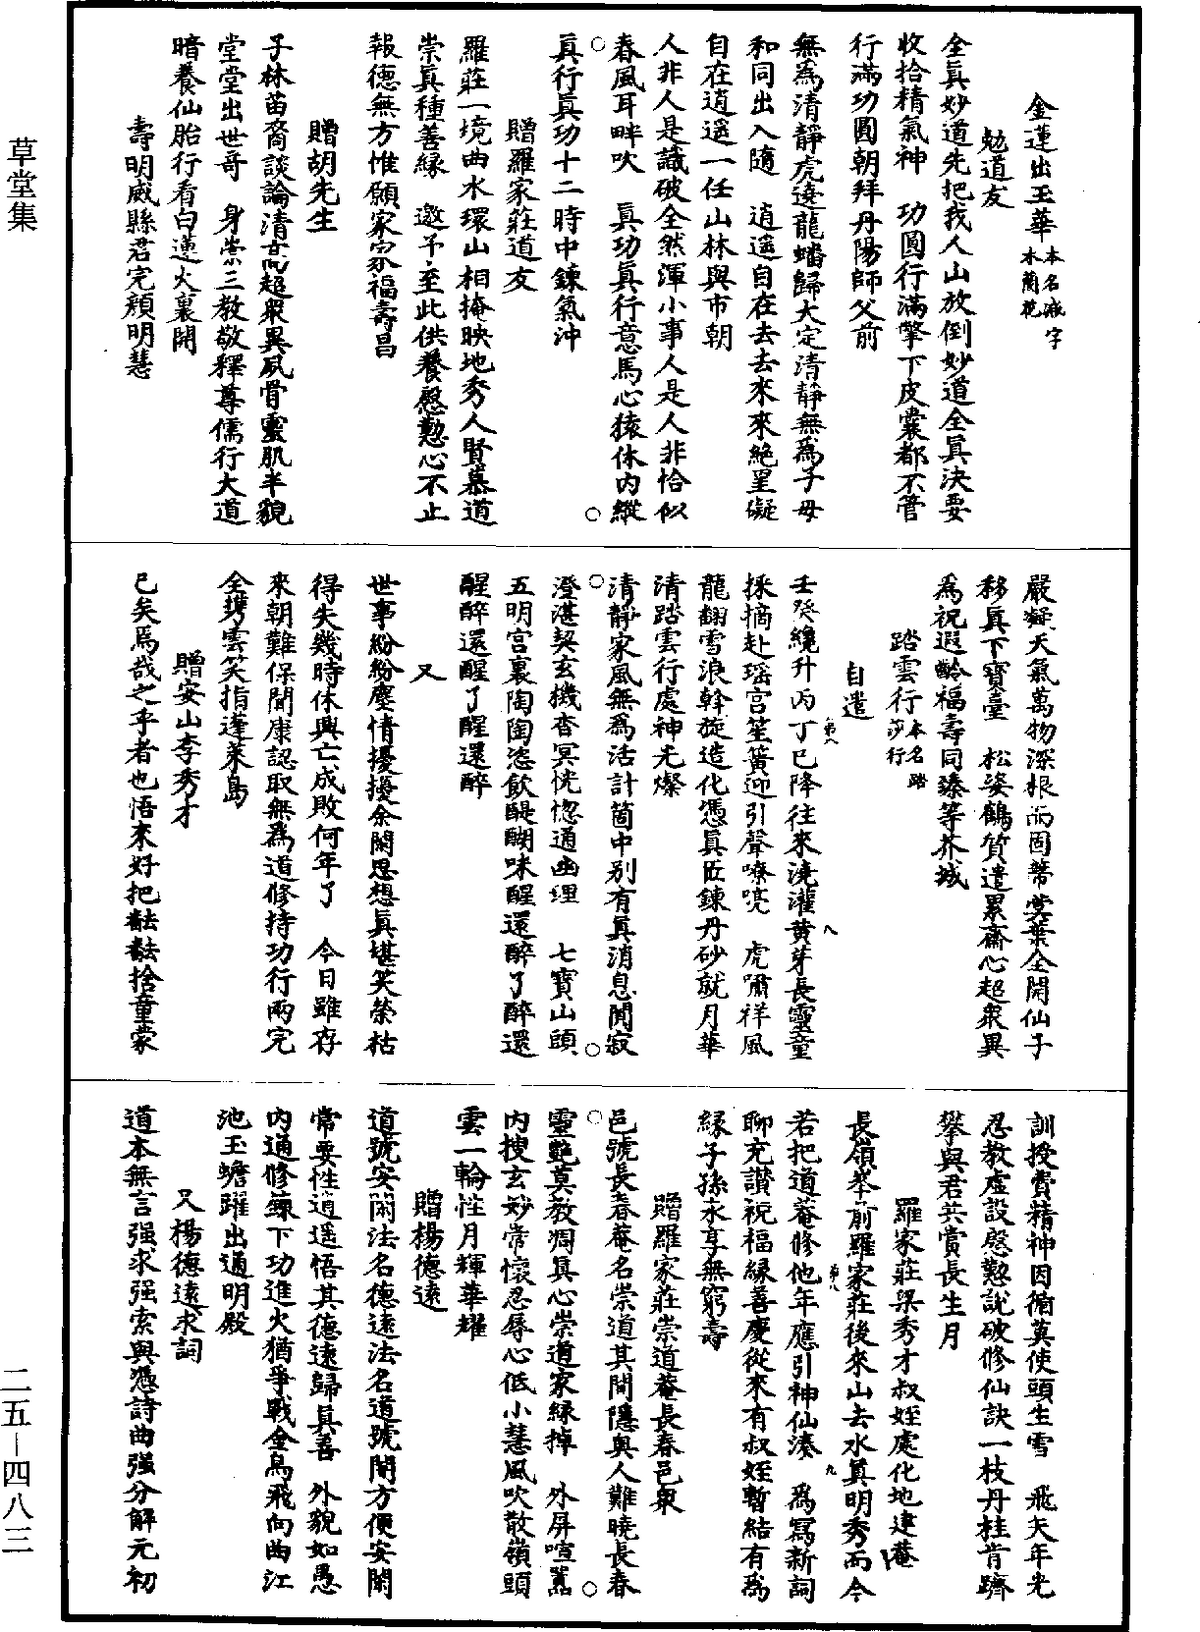 金蓮出玉華本名減字木蘭花
勉道友
全眞妙道先把我人山放倒妙道全眞決要
收拾精氣神　功圓行滿擎下皮囊都不管
行滿功圓朝拜丹陽師父前
無爲清靜虎遶龍蟠歸大定清靜無爲子母
和同出入隨　逍遥自在去去來來絶罣礙
自在逍遥一任山林與市朝
人非人是識破全然渾小事人是人非恰似
春風耳畔吹　眞功眞行意馬心猿休内縱
眞行眞功十二時中鍊氣沖
贈羅家莊道友
羅莊一境曲水環山相掩映地秀人賢慕道
崇眞種善緣　邀予至此供養慇懃心不止
報德無方惟願家家福壽昌
贈胡先生
子林苗裔談論清高超衆異夙骨靈肌半貌
堂堂出世哥　身崇三教敬釋尊儒行大道
暗養仙胎行看白蓮火裏開
壽明威縣君完顏明慧
嚴凝天氣萬物深根而固蔕蓂葉全開仙子
移眞下寶臺　松姿鶴質遣累齋心超衆異
爲祝遐齡福壽同臻等芥城
踏雲行本名踏莎行
自遣
壬癸纔升丙丁已降往來澆灌黄芽長靈童
採摘赴瑶宫笙簧迎引聲嘹喨　虎嘯祥風
龍翻雪浪斡旋造化憑眞匠鍊丹砂就月華
清踏雲行處神光燦
清靜家風無爲活計箇中别有眞消息閴寂
澄湛契玄機杳冥恍惚通幽理　七寶山頭
五明宫裏陶陶恣飲醍醐味醒還醉了醉還
醒醉還醒了醒還醉
又
世事紛紛塵情擾擾余閑思想眞堪笑榮枯
得失幾時休興亡成敗何年了　今日雖存
來朝難保聞康認取無爲道修持功行兩完
全携雲笑指蓬萊島
贈安山李秀才
已矣焉哉之乎者也悟來好把㪇㪇捨童蒙
訓授費精神因循莫使頭生雪　飛矢年光
忍教虚設慇懃說破修仙訣一枝丹桂肯躋
攀與君共賞長生月
羅家莊梁秀才叔姪處化地建菴
長嶺峯前羅家莊後來山去水眞明秀而今
若把道菴修他年應引神仙湊　爲寫新詞
聊充讃祝福緣善慶從來有叔姪暫結有爲
緣子孫永享無窮壽
贈羅家莊崇道菴長春邑衆
邑號長春菴名崇道其間隱奥人難曉長春
靈艷莫教凋眞心崇道家緣掉　外屏喧囂
内搜玄妙常懷忍辱心低小慧風吹散嶺頭
雲一輪性月輝華耀
贈楊德遠
道號安閑法名德遠法名道號開方便安閑
常要性逍遥悟其德遠歸眞善　外貌如愚
内通修鍊下功進火猶爭戰金烏飛向曲江
池玉蟾躍出通明殿
又楊德遠求詞
道本無言强求强索與憑詩曲强分解元初
草堂集
二五—四八三